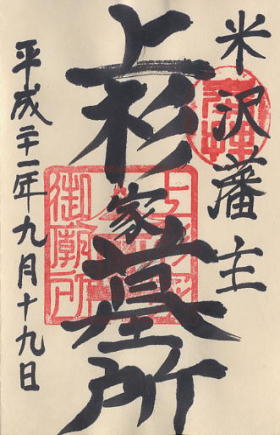 米沢藩主
上杉家墓所
平成二十一年九月十九日
御廟所